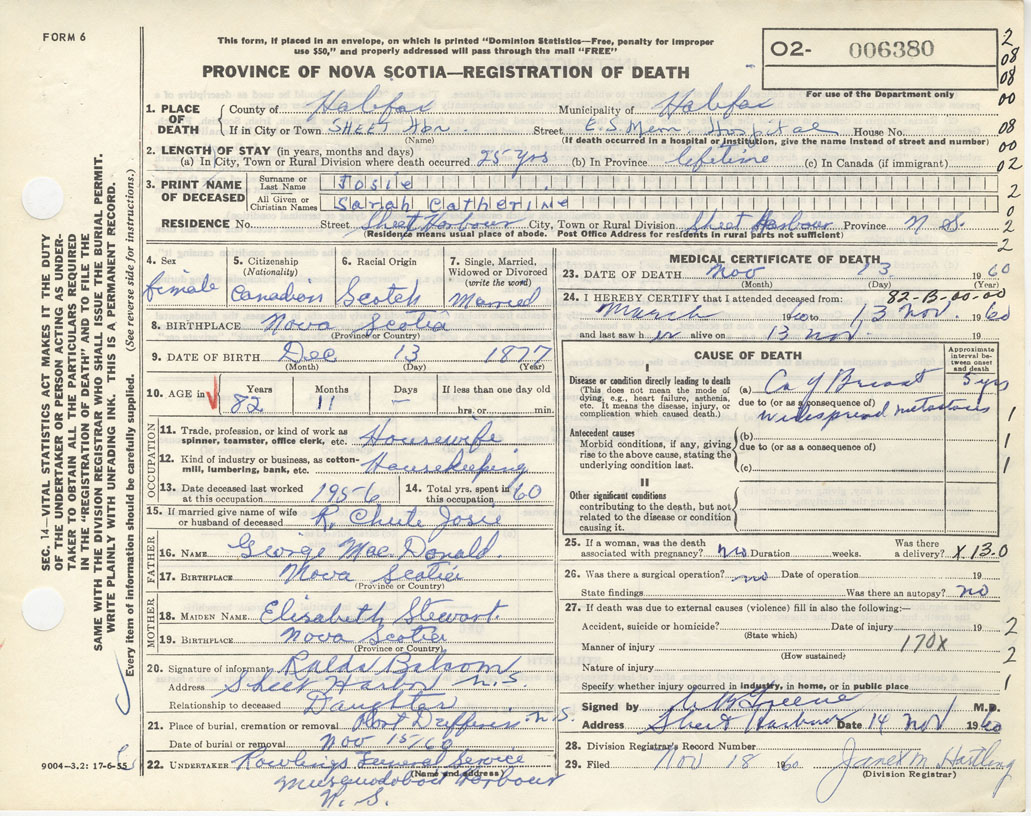 FORM 6
This form, if placed in an envelope, on which is printed "Dominion Statistics—Free, penalty for improper
use $50," and properly addressed will pass through the mail "FREE"
PROVINCE OF NOVA SCOTIA—REGISTRATION OF DEATH
O2- 006380
For use of the Department only
2
08
08
00
08
00
02
2
0
2
2
1. PLACE OF DEATH
County of Halifax Municipality of Halifax
If in City or Town SHEET Hbr. Street E.S. Mem. Hospital House No.
(Name) (If death occurred in a hospital or institution, give the name instead of street and number)
2. LENGTH OF STAY (in years, months and days)
(a) In City, Town or Rural Division where death occurred 25 yrs (b) In Province lifetime (c) In Canada (if immigrant)
3. PRINT NAME OF DECEASED
Surname or Last Name Josie
All Given or Christian Names Sarah Catherine
RESIDENCE No. Street Sheet Harbour City, Town or Rural Division Sheet Harbour Province N.S.
(Residence means usual place of abode. Post Office Address for residents in rural parts not sufficient)
4. Sex
female
5. Citizenship
(Nationality)
Canadian
6. Racial Origin
Scotch
7. Single, Married,
Widowed or Divorced
(write the word)
Married
8. BIRTHPLACE Nova Scotia
(Province or Country)
9. DATE OF BIRTH Dec 13 1877
(Month) (Day) (Year)
10. AGE in Years Months Days If less than one day old
82 11 — hrs. or min.
OCCUPATION
11. Trade, profession, or kind of work as
spinner, teamster, office clerk, etc. Housewife
12. Kind of industry or business, as cotton-
mill, lumbering, bank, etc. Housekeeping
13. Date deceased last worked
at this occupation 1956
14. Total yrs. spent in
this occupation 60
15. If married give name of wife
or husband of deceased R. Chute Josie
FATHER
16. NAME George MacDonald
17. BIRTHPLACE Nova Scotia
(Province or Country)
MOTHER
18. MAIDEN NAME Elisabeth Stewart
19. BIRTHPLACE Nova Scotia
(Province or Country)
20. Signature of informant Ralda Balcom
Address Sheet Harbor N.S.
Relationship to deceased Daughter
21. Place of burial, cremation or removal Port Dufferin N.S.
Date of burial or removal Nov 15/60
22. UNDERTAKER Rowlings Funeral Service
(Name and address)
Musquodoboit Harbour
N. S.
MEDICAL CERTIFICATE OF DEATH
23. DATE OF DEATH Nov 13 1960
(Month) (Day)
82-B-00-00
24. I HEREBY CERTIFY that I attended deceased from:
March 1960 to 13 Nov. 1960
and last saw her alive on 13 Nov. 19
CAUSE OF DEATH
Approximate
interval be-
tween onset
and death
I
Disease or condition directly leading to death
(This does not mean the mode of
dying, e.g., heart failure, asthenia,
etc. It means the disease, injury, or
complication which caused death.)
(a) Ca of Breast 5 yrs
due to (or as a consequence of)
widespread metastases
1
Antecedent causes
Morbid conditions, if any, giving
rise to the above cause, stating the
underlying condition last.
(b)
due to (or as a consequence of)
(c)
1
1
II
Other significant conditions
contributing to the death, but not
related to the disease or condition
causing it.
25. If a woman, was the death
associated with pregnancy? no Duration weeks. Was there
a delivery? X.13.0
26. Was there a surgical operation? no Date of operation 19
State findings Was there an autopsy? no
27. If death was due to external causes (violence) fill in also the following:—
Accident, suicide or homicide? Date of injury 19
(State which)
2
Manner of injury 170X
(How sustained)
2
Nature of injury
Specify whether injury occurred in industry, in home, or in public place
1
Signed by Greene M.D.
Address Sheet Harbour Date 14 Nov 1960
28. Division Registrar's Record Number
29. Filed Nov 18 1960 Janet M. Hartling
(Division Registrar)
SEC. 14—VITAL STATISTICS ACT MAKES IT THE DUTY
OF THE UNDERTAKER OR PERSON ACTING AS UNDER-
TAKER TO OBTAIN ALL THE PARTICULARS REQUIRED
IN THE "REGISTRATION OF DEATH" AND TO FILE THE
SAME WITH THE DIVISION REGISTRAR WHO SHALL ISSUE THE BURIAL PERMIT.
WRITE PLAINLY WITH UNFADING INK. THIS IS A PERMANENT RECORD.
Every item of information should be carefully supplied. (See reverse side for instructions.)
9004—3.2: 17-6-55